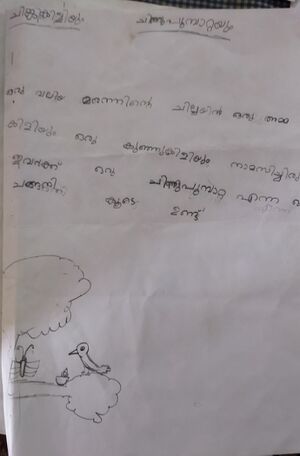 ചിങ്കുകിളിയും ചിത്തുപൂമ്പാറ്റയും
ഒരു വലിയ മരത്തിന്റെ ചില്ലയിൽ ഒരു അമ്മ
കിളിയും ഒരു കുഞ്ഞുകിളിയും താമസിച്ചിരു
ഇവർക്ക് ഒരു ചിത്തുപൂമ്പാറ്റ എന്ന
കൂടെ ഉണ്ട്